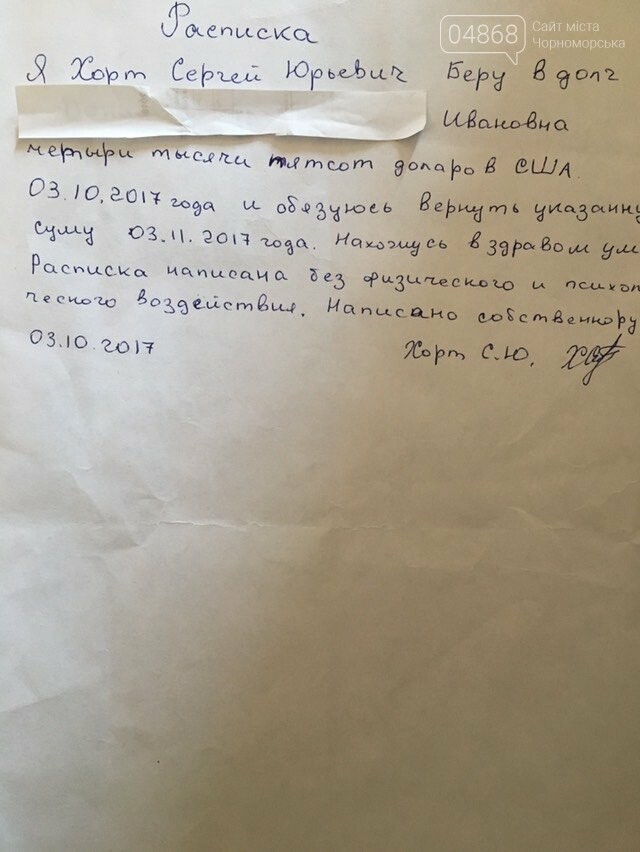 04868
Сайт міста
Чорноморська
Расписка
Я Хорт Сергей Юрьевич Беру в долг
Ивановна
четыри тысячи пятсот доларов США.
03.10.2017 года и обязуюсь вернуть указанну
суму 03.11.2017 года. Нахожусь в здравом ум
Расписка написана без физического и психол
ческого воздействия. Написано собственнору
03.10.2017 Хорт С.Ю.